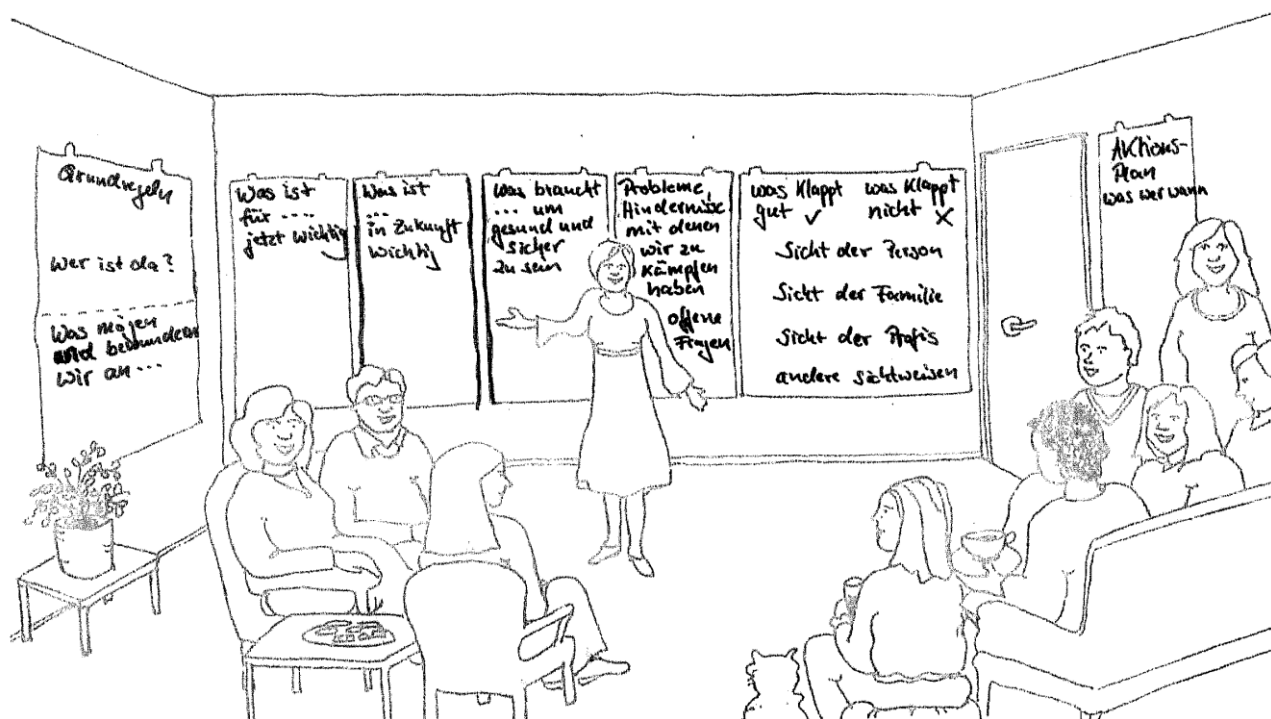 Grundregeln
Wer ist da?
Was mögen
und bewundern
wir an ...
Was ist
für ....
jetzt wichtig
Was ist
...
in Zukunft
wichtig
was braucht
... um
gesund und
sicher
zu sein
Probleme,
Hindernisse
mit denen
wir zu
kämpfen
haben
offene
Fragen
was klappt
gut ✓
was klappt
nicht X
Sicht der Person
Sicht der Familie
Sicht der Profis
andere Sichtweisen
Aktions-
Plan
was wer wann